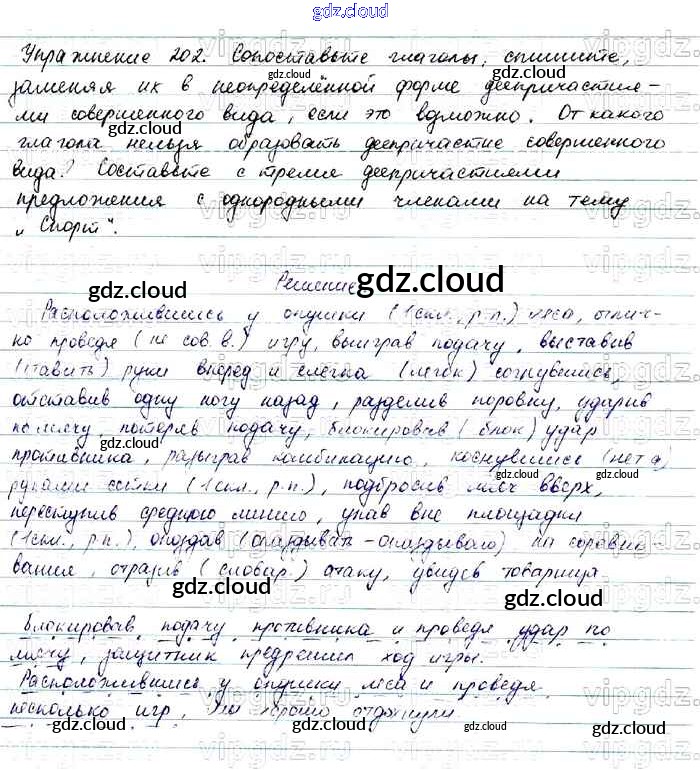 gdz.cloud
Упражнение 202. Сопоставьте глаголы, спишите,
gdz.cloud
заменяя их в неопределённой форме деепричастия-
ми совершенного вида, если это возможно. От какого
gdz.cloud
глагола нельзя образовать деепричастие совершенного
вида? Составьте с тремя деепричастиями
gdz.cloud gdz.cloud
предложения с однородными членами на тему
„Спорт".
gdz.cloud
Решение gdz.cloud
Расположившись у опушки (1 скл., р.п.) леса, отлич-
но проведя (не сов. в.) игру, выиграв подачу, выставив
gdz.cloud
(ставить) руки вперед и слегка (легок) согнувшись,
отставив одну ногу назад, разделив поровну, ударив
по мячу, потеряв подачу, блокировав (блок) удар
gdz.cloud
противника, разыграв комбинацию, коснувшись (нет а)
gdz.cloud
руками сетки (1 скл., р.п.), подбросив мяч вверх,
gdz.cloud
переступив среднюю линию, упав вне площадки
(1 скл., р.п.), опоздав (опаздывать - опаздываю) на соревно-
gdz.cloud
вания, отразив (словар.) атаку, увидев товарища.
gdz.cloud gdz.cloud
Блокировав подачу противника и проведя удар по
мячу, защитник предрешил ход игры.
gdz.cloud
Расположившись у опушки леса и проведя
несколько игр, хорошо отдохнули
gdz.cloud gdz.cloud gdz.cloud